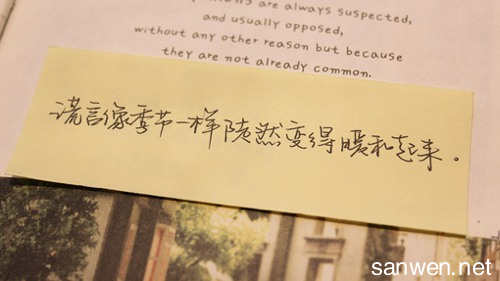 are always suspected,
and usually opposed,
without any other reason but because
they are not already common.
谎言像季节一样陡然变得暖和起来。
sanwen.net